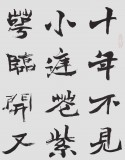 十年不見
小庭花紫
萼臨開又